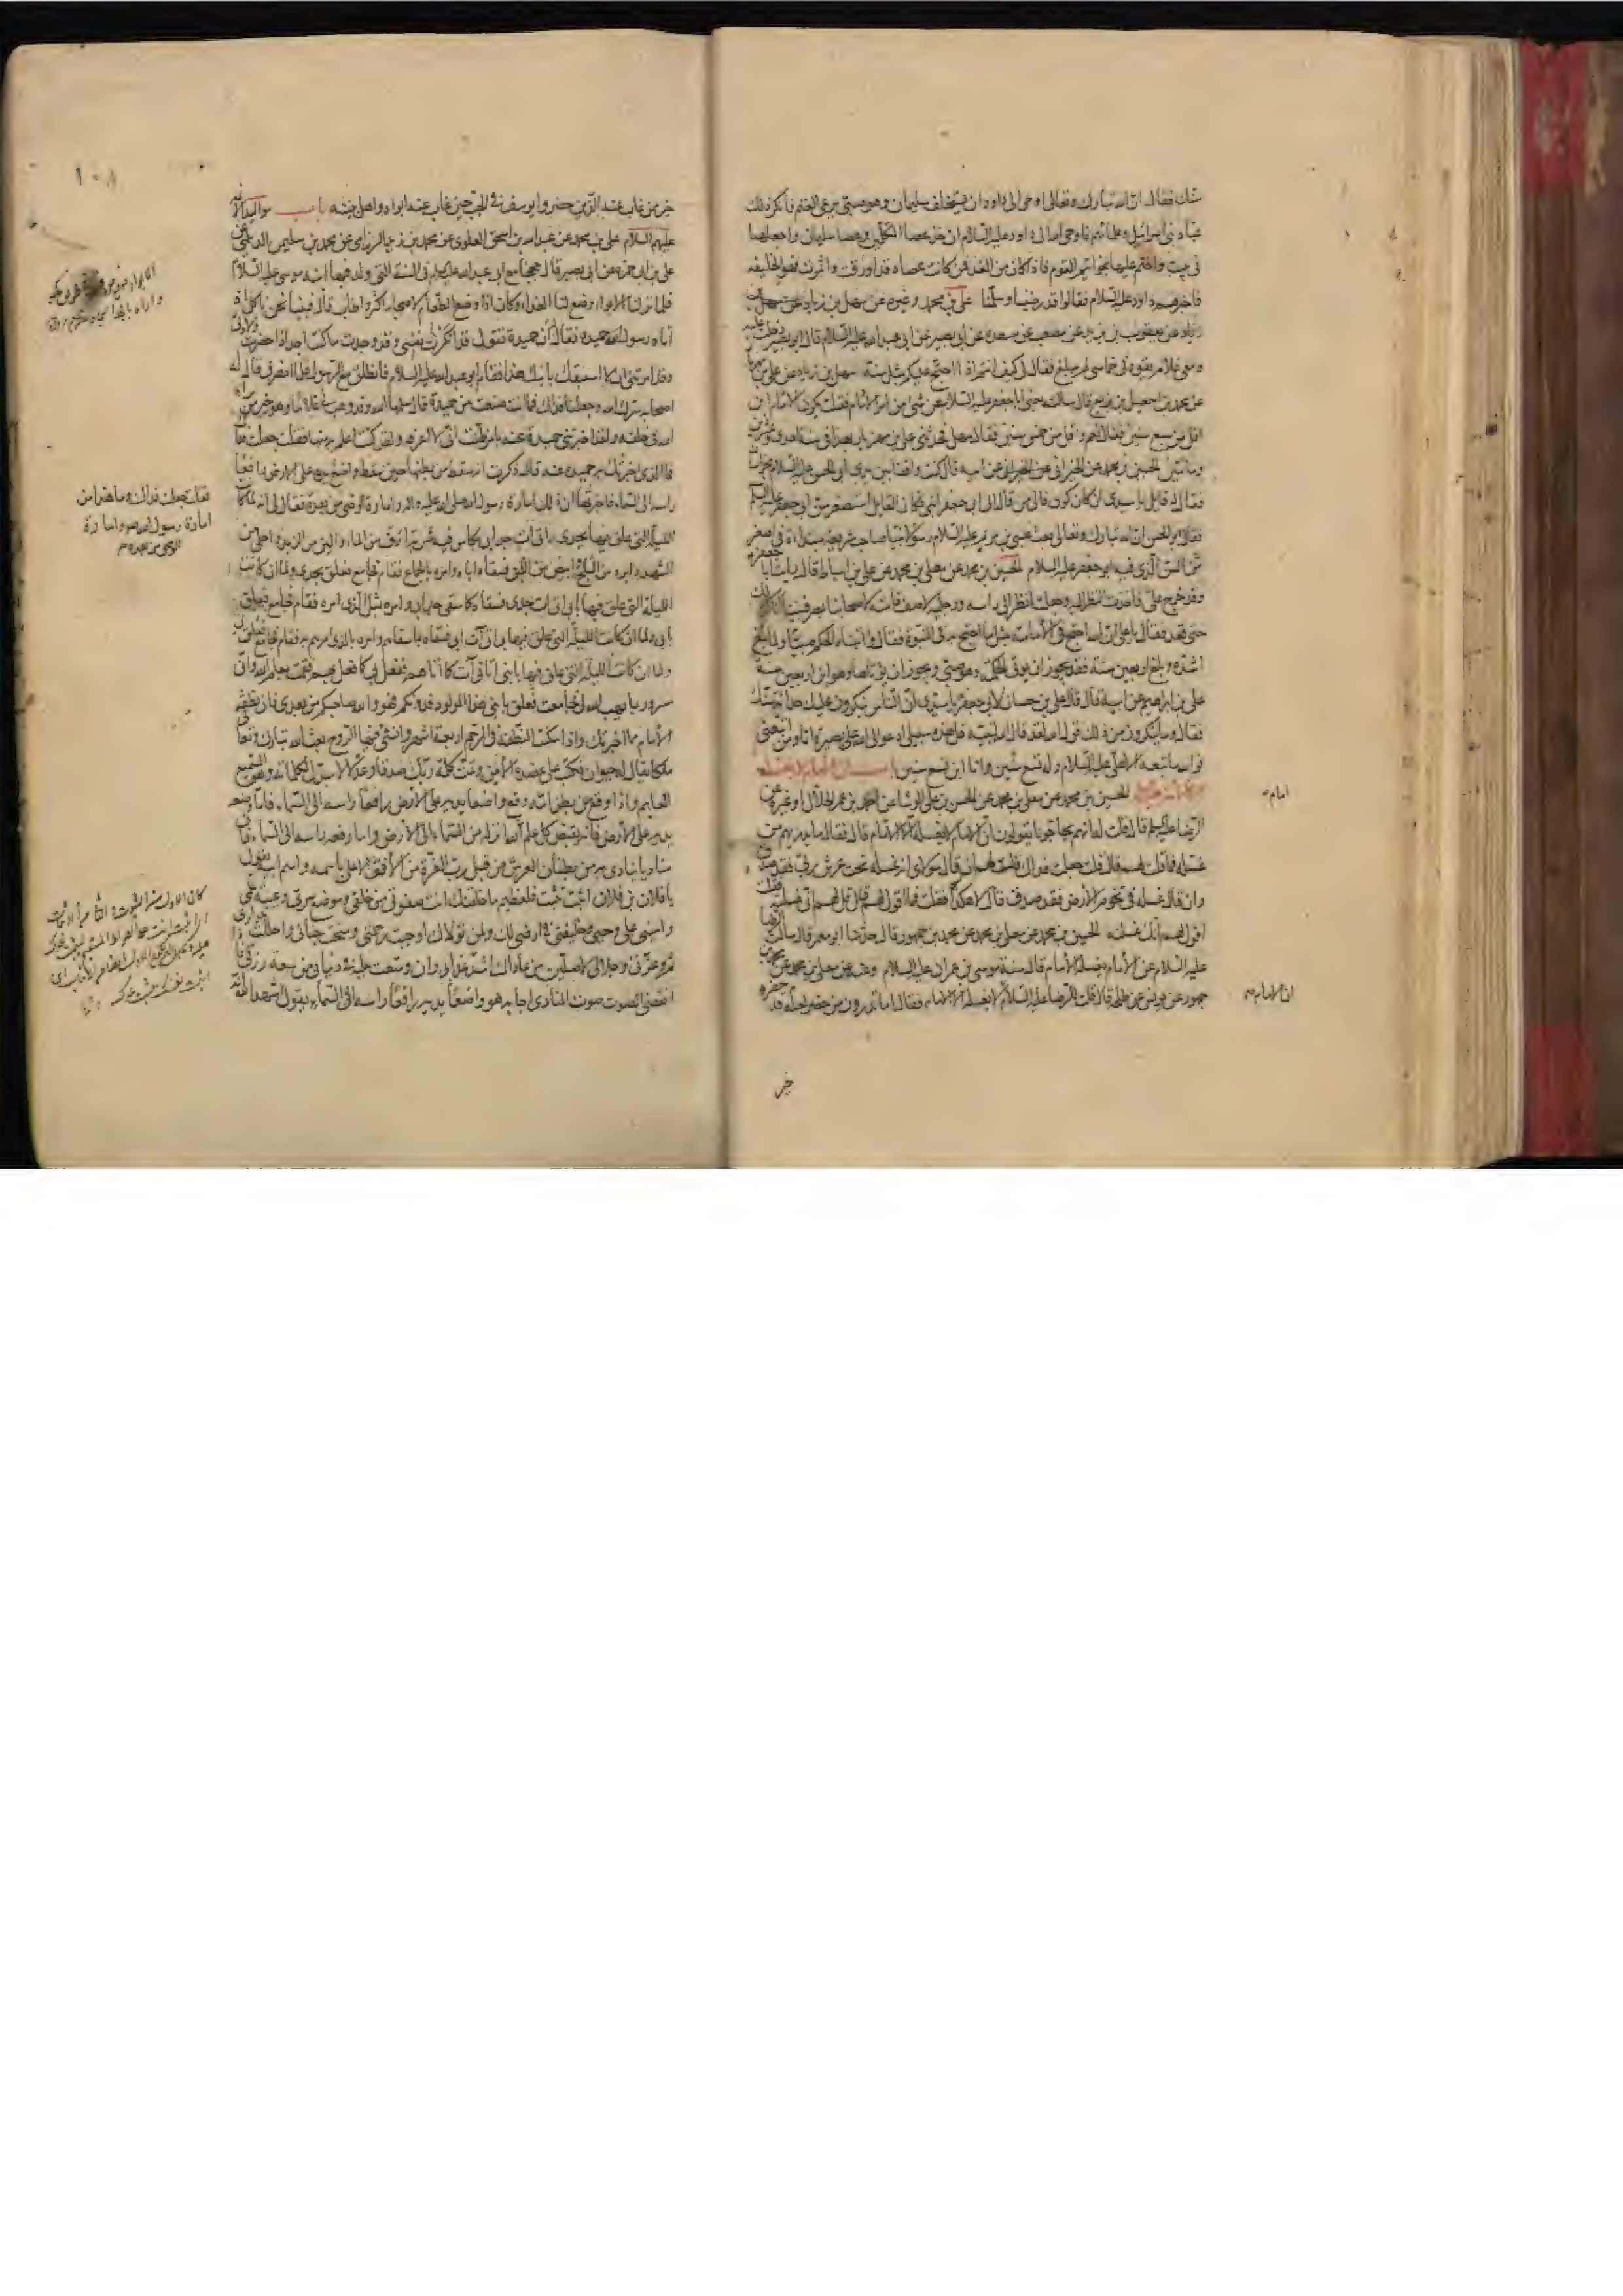 سنك فقال ان الله تبارك وتعالى اوحى الى داود ان يستخلف سليمان وهو صبي يرعى الغنم فانكر ذلك
عباد بني اسرائيل وعلماؤهم فاوحى الله الى داود عليه السلام ان خذ عصا المتكلمين وعصا سليمان واجعلها
في بيت واختم عليها بخواتيم القوم فاذا كان من الغد فمن كانت عصاه قد اورقت واثمرت فهو الخليفة
فاخبرهم داود عليه السلام فقالوا قد رضينا وسلمنا علي بن محمد وغيره عن سهل بن زياد
عن يعقوب بن يزيد عن مصعب عن مسعدة عن ابي بصير عن ابي عبد الله عليه السلام قال ابو بصير دخلت عليه
ومعي غلام يقودني خماسي لم يبلغ فقال لي كيف انتم اذا احتج عليكم بمثل سنه سهل بن زياد عن علي بن مهزيار
عن محمد بن اسمعيل بن بزيع قال سالته يعني ابا جعفر عليه السلام عن شيء من امر الامام فقلت يكون الامام ابن
اقل من سبع سنين فقال نعم واقل من خمس سنين فقال سهل فحدثني علي بن مهزيار بهذا في سنة احدى وعشرين
ومائتين الحسين بن محمد عن الخيراني عن ابيه قال كنت واقفا بين يدي ابي الحسن عليه السلام بخراسان
فقال له قايل يا سيدي ان كان كون فالى من قال الى ابي جعفر ابني فكان القايل استصغر سن ابي جعفر عليه السلم
فقال ابو الحسن ان الله تبارك وتعالى بعث عيسى بن مريم عليه السلام رسولا نبيا صاحب شريعة مبتداة في اصغر
من السن الذي فيه ابو جعفر عليه السلام الحسين بن محمد عن معلى بن محمد عن علي بن اسباط قال رايت ابا جعفر ع
وقد خرج علي فاخذت النظر اليه وجعلت انظر الى راسه ورجليه لاصف قامته لاصحابنا بمصر فبينا انا كذلك
حتى قعد فقال يا علي ان الله احتج في الامامة بمثل ما احتج به في النبوة فقال واتيناه الحكم صبيا ولما بلغ
اشده وبلغ اربعين سنة فقد يجوز ان يؤتى الحكمة وهو صبي ويجوز ان يؤتاها وهو ابن اربعين سنة
علي بن ابراهيم عن ابيه قال قال علي بن حسان لابي جعفر يا سيدي ان الناس ينكرون عليك حداثة سنك
فقال وما ينكرون من ذلك قول الله لقد قال الله لنبيه قل هذه سبيلي ادعو الى الله على بصيرة انا ومن اتبعني
فوالله ما تبعه الا علي عليه السلام وله تسع سنين وانا ابن تسع سنين باب ان الامام لا يغسله
الحسين بن محمد عن معلى بن محمد عن الحسن بن علي الوشا عن احمد بن عمر الحلال او غيره عن
الرضا عليه السلم قال قلت له انهم يحاجونا يقولون ان الامام لا يغسله الا الامام قال فقال ما يدريهم من
غسله فما قلت لهم قال قلت جعلت فداك قلت لهم ان قال مولاي انه غسله تحت عرش ربي فقد صدق
وان قال غسله في تخوم الارض فقد صدق قال لا هكذا فقلت فما اقول لهم قال قل لهم اني غسلته فقلت
اقول لهم انك غسلته الحسين بن محمد عن معلى بن محمد عن محمد بن جمهور قال حدثنا ابو معمر قال سالت الرضا
عليه السلام عن الامام يغسله الامام قال سنة موسى بن عمران عليه السلام وعنه عن معلى بن محمد عن محمد بن
جمهور عن يونس عن طلحة قال قلت للرضا عليه السلام ان الامام لا يغسله الا الامام فقال اما تدرون من حضر لغسله قد
امام
ان الامام
خير
١٠٨
خير ممن غاب عنه الذين حضروا يوسف في الجب حين غاب عنه ابواه واهل بيته باب مواليد الائمة
عليهم السلام علي بن محمد عن عبد الله بن اسحق العلوي عن محمد بن زيد الرزامي عن محمد بن سليمن الديلمي عن
علي بن ابي حمزة عن ابي بصير قال حججنا مع ابي عبد الله عليه السلم في السنة التي ولد فيها ابنه موسى عليه السلام
فلما نزلنا الابواء وضع لنا الغداء وكان اذا وضع الطعام لاصحابه اكثر واطاب قال فبينا نحن ناكل اذ
اتاه رسول حميدة فقال ان حميدة تقول قد انكرت نفسي وقد وجدت ما كنت اجد اذا حضرت ولادتي
وقد امرتني ان لا استبقك بابنك هذا فقام ابو عبد الله عليه السلام فانطلق مع الرسول فلما انصرف قال له
اصحابه سرك الله وجعلنا فداك فما انت صنعت من حميدة قال سلمها الله وقد وهب لي غلاما وهو خير من برا
الله في خلقه ولقد اخبرتني حميدة عنه بامر ظنت اني لا اعرفه ولقد كنت اعلم به منها فقلت جعلت فداك
فما الذي اخبرتك به حميدة عنه قال ذكرت انه سقط من بطنها حين سقط واضع يديه على الارض رافعا
راسه الى السماء فاخبرتها ان ذلك امارة رسول الله صلى الله عليه واله وامارة الوصي من بعده فقال لي انه لما كانت
الليلة التي علق فيها بجدي اتى ات جد ابي بكاس فيه شربة ارق من الماء والين من الزبد واحلى من
الشهد وابرد من الثلج وابيض من اللبن فسقاه اياه وامره بالجماع فقام فجامع فعلق بجدي ولما ان كانت
الليلة التي علق فيها بابي اتى ات جدي فسقاه كما سقى جد ابي وامره بمثل الذي امره فقام فجامع فعلق
بابي ولما ان كانت الليلة التي علق فيها بي اتى آت ابي فسقاه بما سقاهم وامره بالذي امرهم به فقام فجامع فعلق بي
ولما ان كانت الليلة التي علق فيها بابني اتاني آت كما اتاهم ففعل بي كما فعل بهم فقمت بعلم الله واني
مسرور بما يهب الله لي فجامعت فعلق بابني هذا المولود فدونكم فهو والله صاحبكم من بعدي فان نطفة
الامام مما اخبرتك واذا سكنت النطفة في الرحم اربعة اشهر وانشئ فيها الروح بعث الله تبارك وتعالى
ملكا يقال له حيوان فكتب على عضده الايمن وتمت كلمة ربك صدقا وعدلا لا مبدل لكلماته وهو السميع
العليم واذا وقع من بطن امه وقع واضعا يديه على الارض رافعا راسه الى السماء فاما وضعه
يديه على الارض فانه يقبض كل علم لله انزله من السماء الى الارض واما رفعه راسه الى السماء فان
مناديا ينادي به من بطنان العرش من قبل رب العزة من الافق الاعلى باسمه واسم ابيه يقول
يا فلان بن فلان اثبت تثبت فلعظيم ما خلقتك انت صفوتي من خلقي وموضع سري وعيبة علمي
واميني على وحيي وخليفتي في ارضي لك ولمن تولاك اوجبت رحمتي ومنحت جناني واحللت جواري
ثم وعزتي وجلالي لاصلين من عاداك اشد عذابي وان وسعت عليه في دنياي من سعة رزقي فاذا
انقضى الصوت صوت المنادي اجابه هو واضعا يديه رافعا راسه الى السماء يقول شهد الله انه
فقلت جعلت فداك وما هذا من
امارة رسول الله ص وامارة
الوصي من بعده م